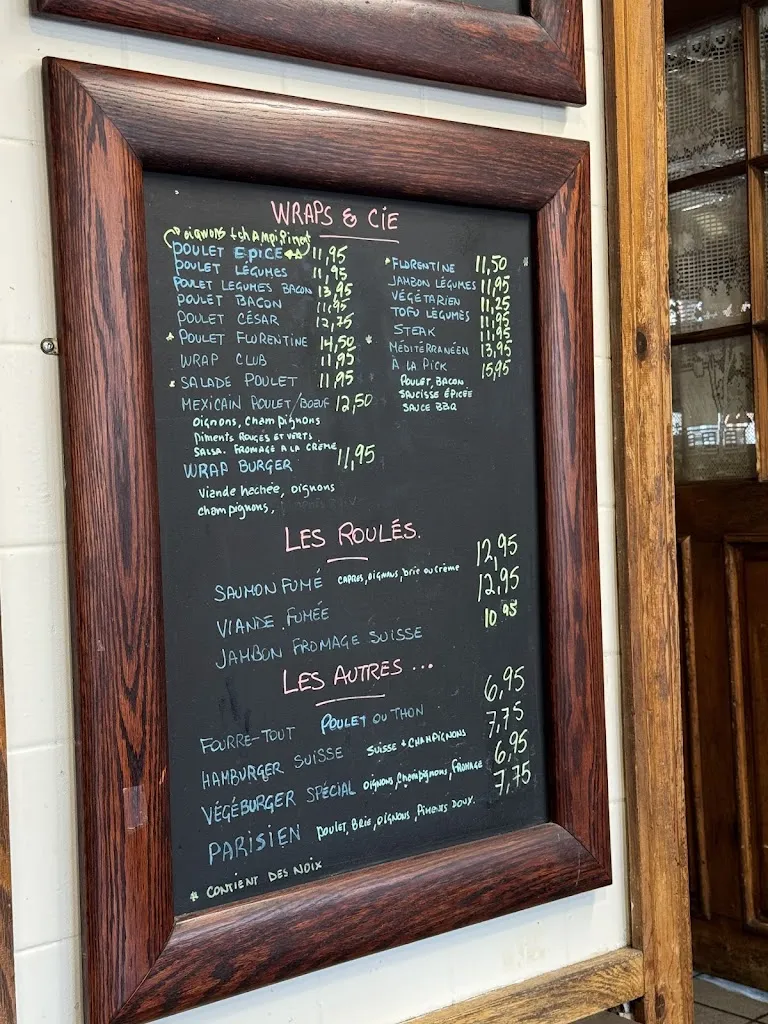 WRAPS & CIE
oignons + champi, piment
POULET ÉPICÉ 11,95
POULET LÉGUMES 11,95
POULET LEGUMES BACON 13,95
POULET BACON 11,95
POULET CÉSAR 12,75
* POULET FLORENTINE 14,50 *
WRAP CLUB 11,95
* SALADE POULET 11,95
MEXICAIN POULET/BOEUF 12,50
oignons, champignons
Piments ROUGES ET VERTS
SALSA. FROMAGE A LA CRÈME
WRAP BURGER 11,95
Viande hachée, oignons
champignons,
* FLORENTINE 11,50 *
JAMBON LÉGUMES 11,95
VÉGÉTARIEN 11,25
TOFU LÉGUMES 11,95
STEAK 11,95
MÉDITÉRRANÉEN 13,95
À LA PICK 15,95
POULET, BACON,
SAUCISSE ÉPICÉE
SAUCE BBQ
LES ROULÉS.
SAUMON FUMÉ CAPRES, OIGNONS, brie ou crème 12,95
VIANDE FUMÉE 12,95
JAMBON FROMAGE SUISSE 10 95
LES AUTRES ...
FOURRE-TOUT POULET OU THON 6,95
HAMBURGER SUISSE SUISSE + CHAMPIGNONS 7,75
VÉGÉBURGER SPÉCIAL OIGNONS, Champignons, FROMAGE 6,95
PARISIEN POULET, BRIE, OIGNONS, PIMENTS DOUX. 7,75
* CONTIENT DES NOIX